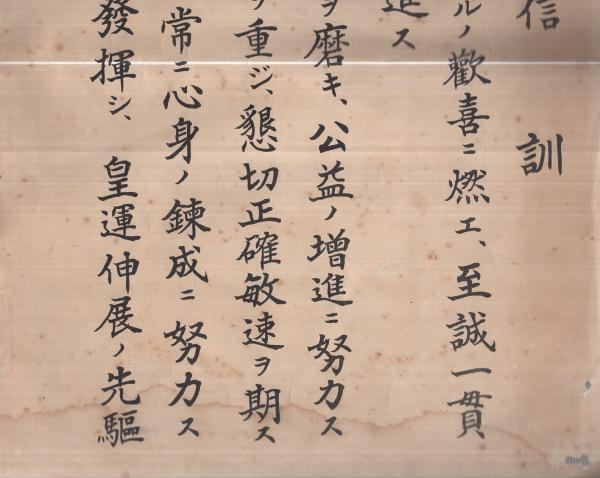 信訓
ルノ歡喜ニ燃エ、至誠一貫
進ス
ヲ磨キ、公益ノ增進ニ努力ス
ヲ重ジ、懇切正確敏速ヲ期ス
常ニ心身ノ鍊成ニ努力ス
發揮シ、皇運伸展ノ先驅